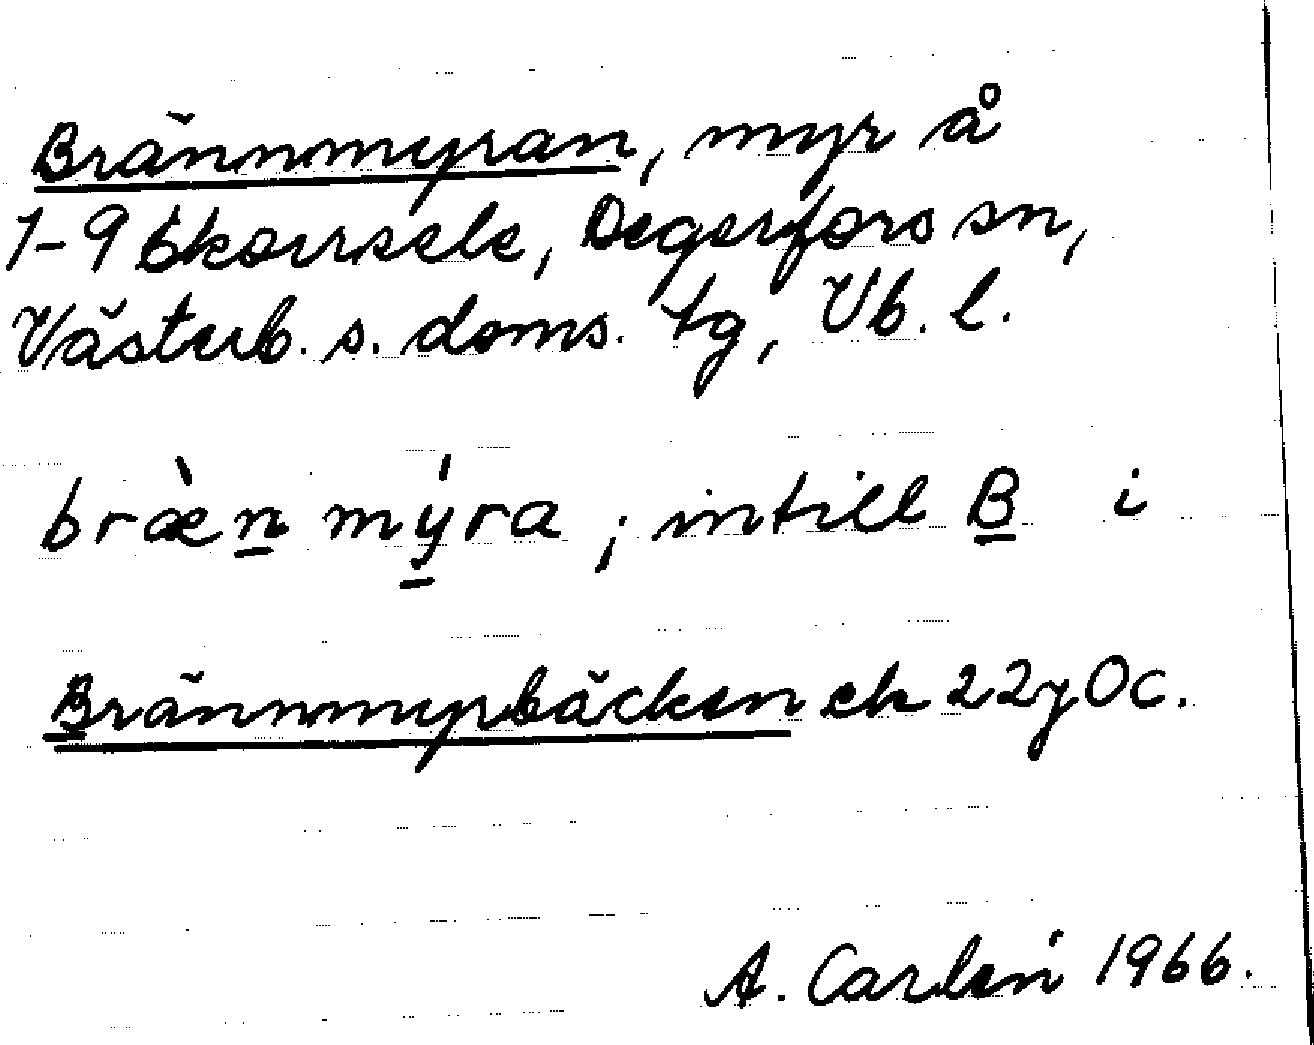 Brännmyran, myr å
1-9 Ekorrsele, Degerfors sn,
Västerb. s. doms. tg, Vb. l.
bræ̀n mýra ; intill B i
Brännmyrbäcken ek 22 j 0 c.
A. Carlén 1966.